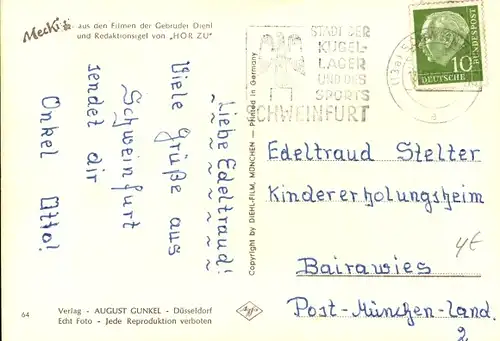 Mecki aus den Filmen der Gebrüder Diehl
und Redaktionsigel von "HÖR ZU"
Liebe Edeltraud!
Viele Grüße aus
Schweinfurt
sendet dir
Onkel Otto!
64
Verlag - AUGUST GUNKEL - Düsseldorf
Echt Foto - Jede Reproduktion verboten
Agfa
Copyright by DIEHL-FILM, MÜNCHEN — Printed in Germany
STADT DER
KUGEL-
LAGER
UND DES
SPORTS
SCHWEINFURT
DEUTSCHE
BUNDESPOST
10
(13a)
a
Edeltraud Stelter
Kindererholungsheim
4€
Bairawies
Post-München-Land.
2